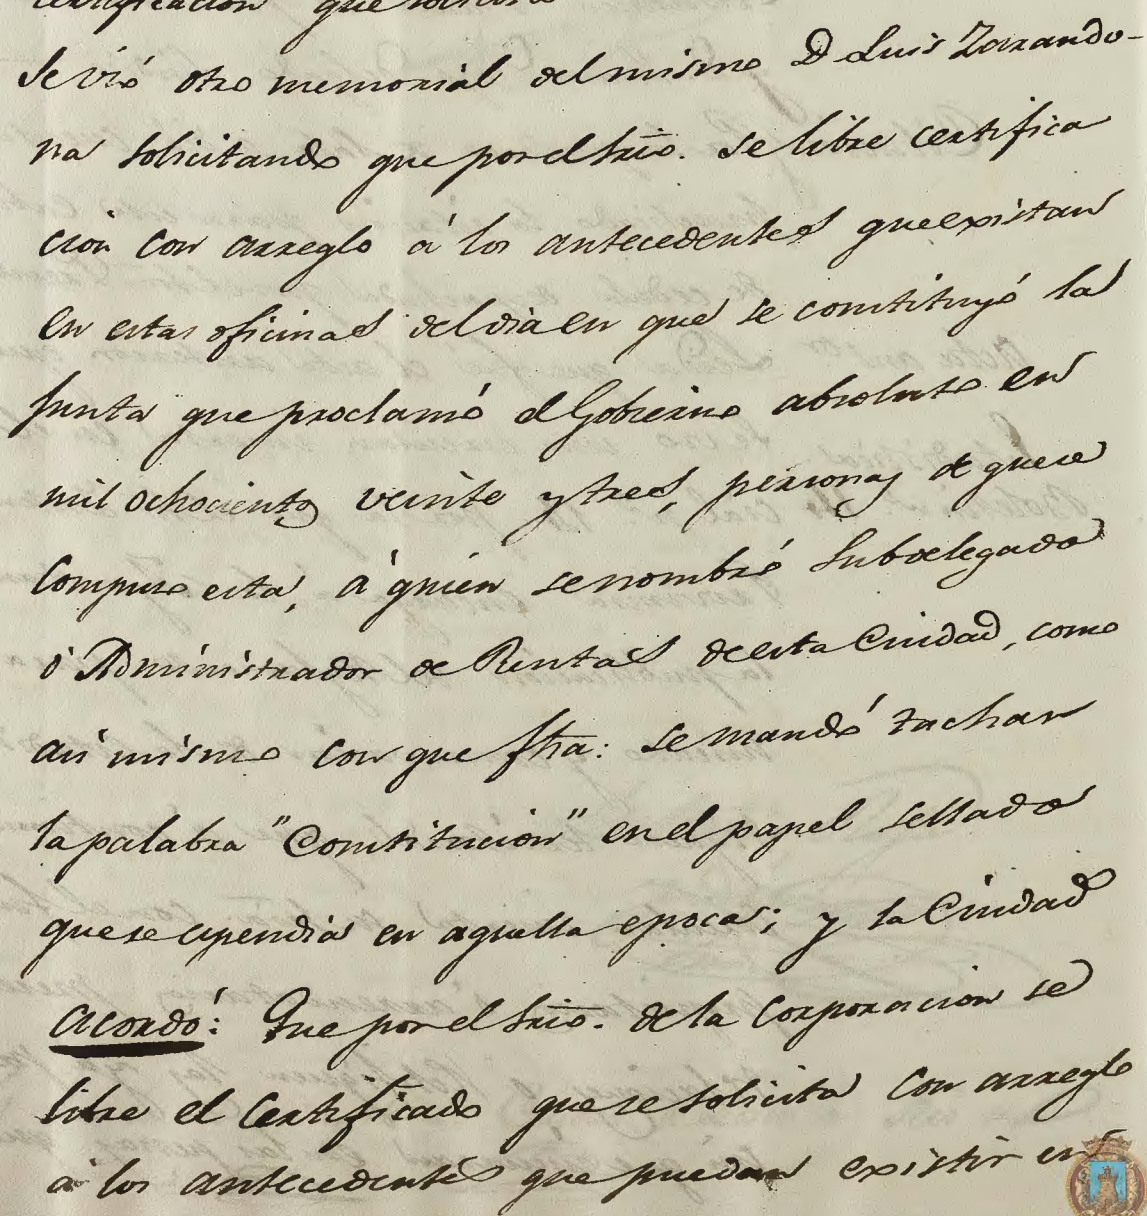 certificacion que
Se vió otro memorial del mismo D. Luis Zarando-
na solicitando que por el Srio. se libre certifica
cion con arreglo á los antecedentes que existan
en estas oficinas del dia en que se constituyó la
Junta que proclamó el Gobierno absoluto en
mil ochocientos veinte y tres, personas de que se
compuso esta, á quien se nombró Subdelegado
ó Administrador de Rentas de esta Ciudad, como
asi mismo con que fha: se mandó tachar
la palabra "Constitucion" en el papel sellado
que se espendia en aquella epoca; y la Ciudad
acordó: Que por el Srio. de la Corporacion se
libre el Certificado que se solicita con arreglo
á los antecedentes que puedan existir en